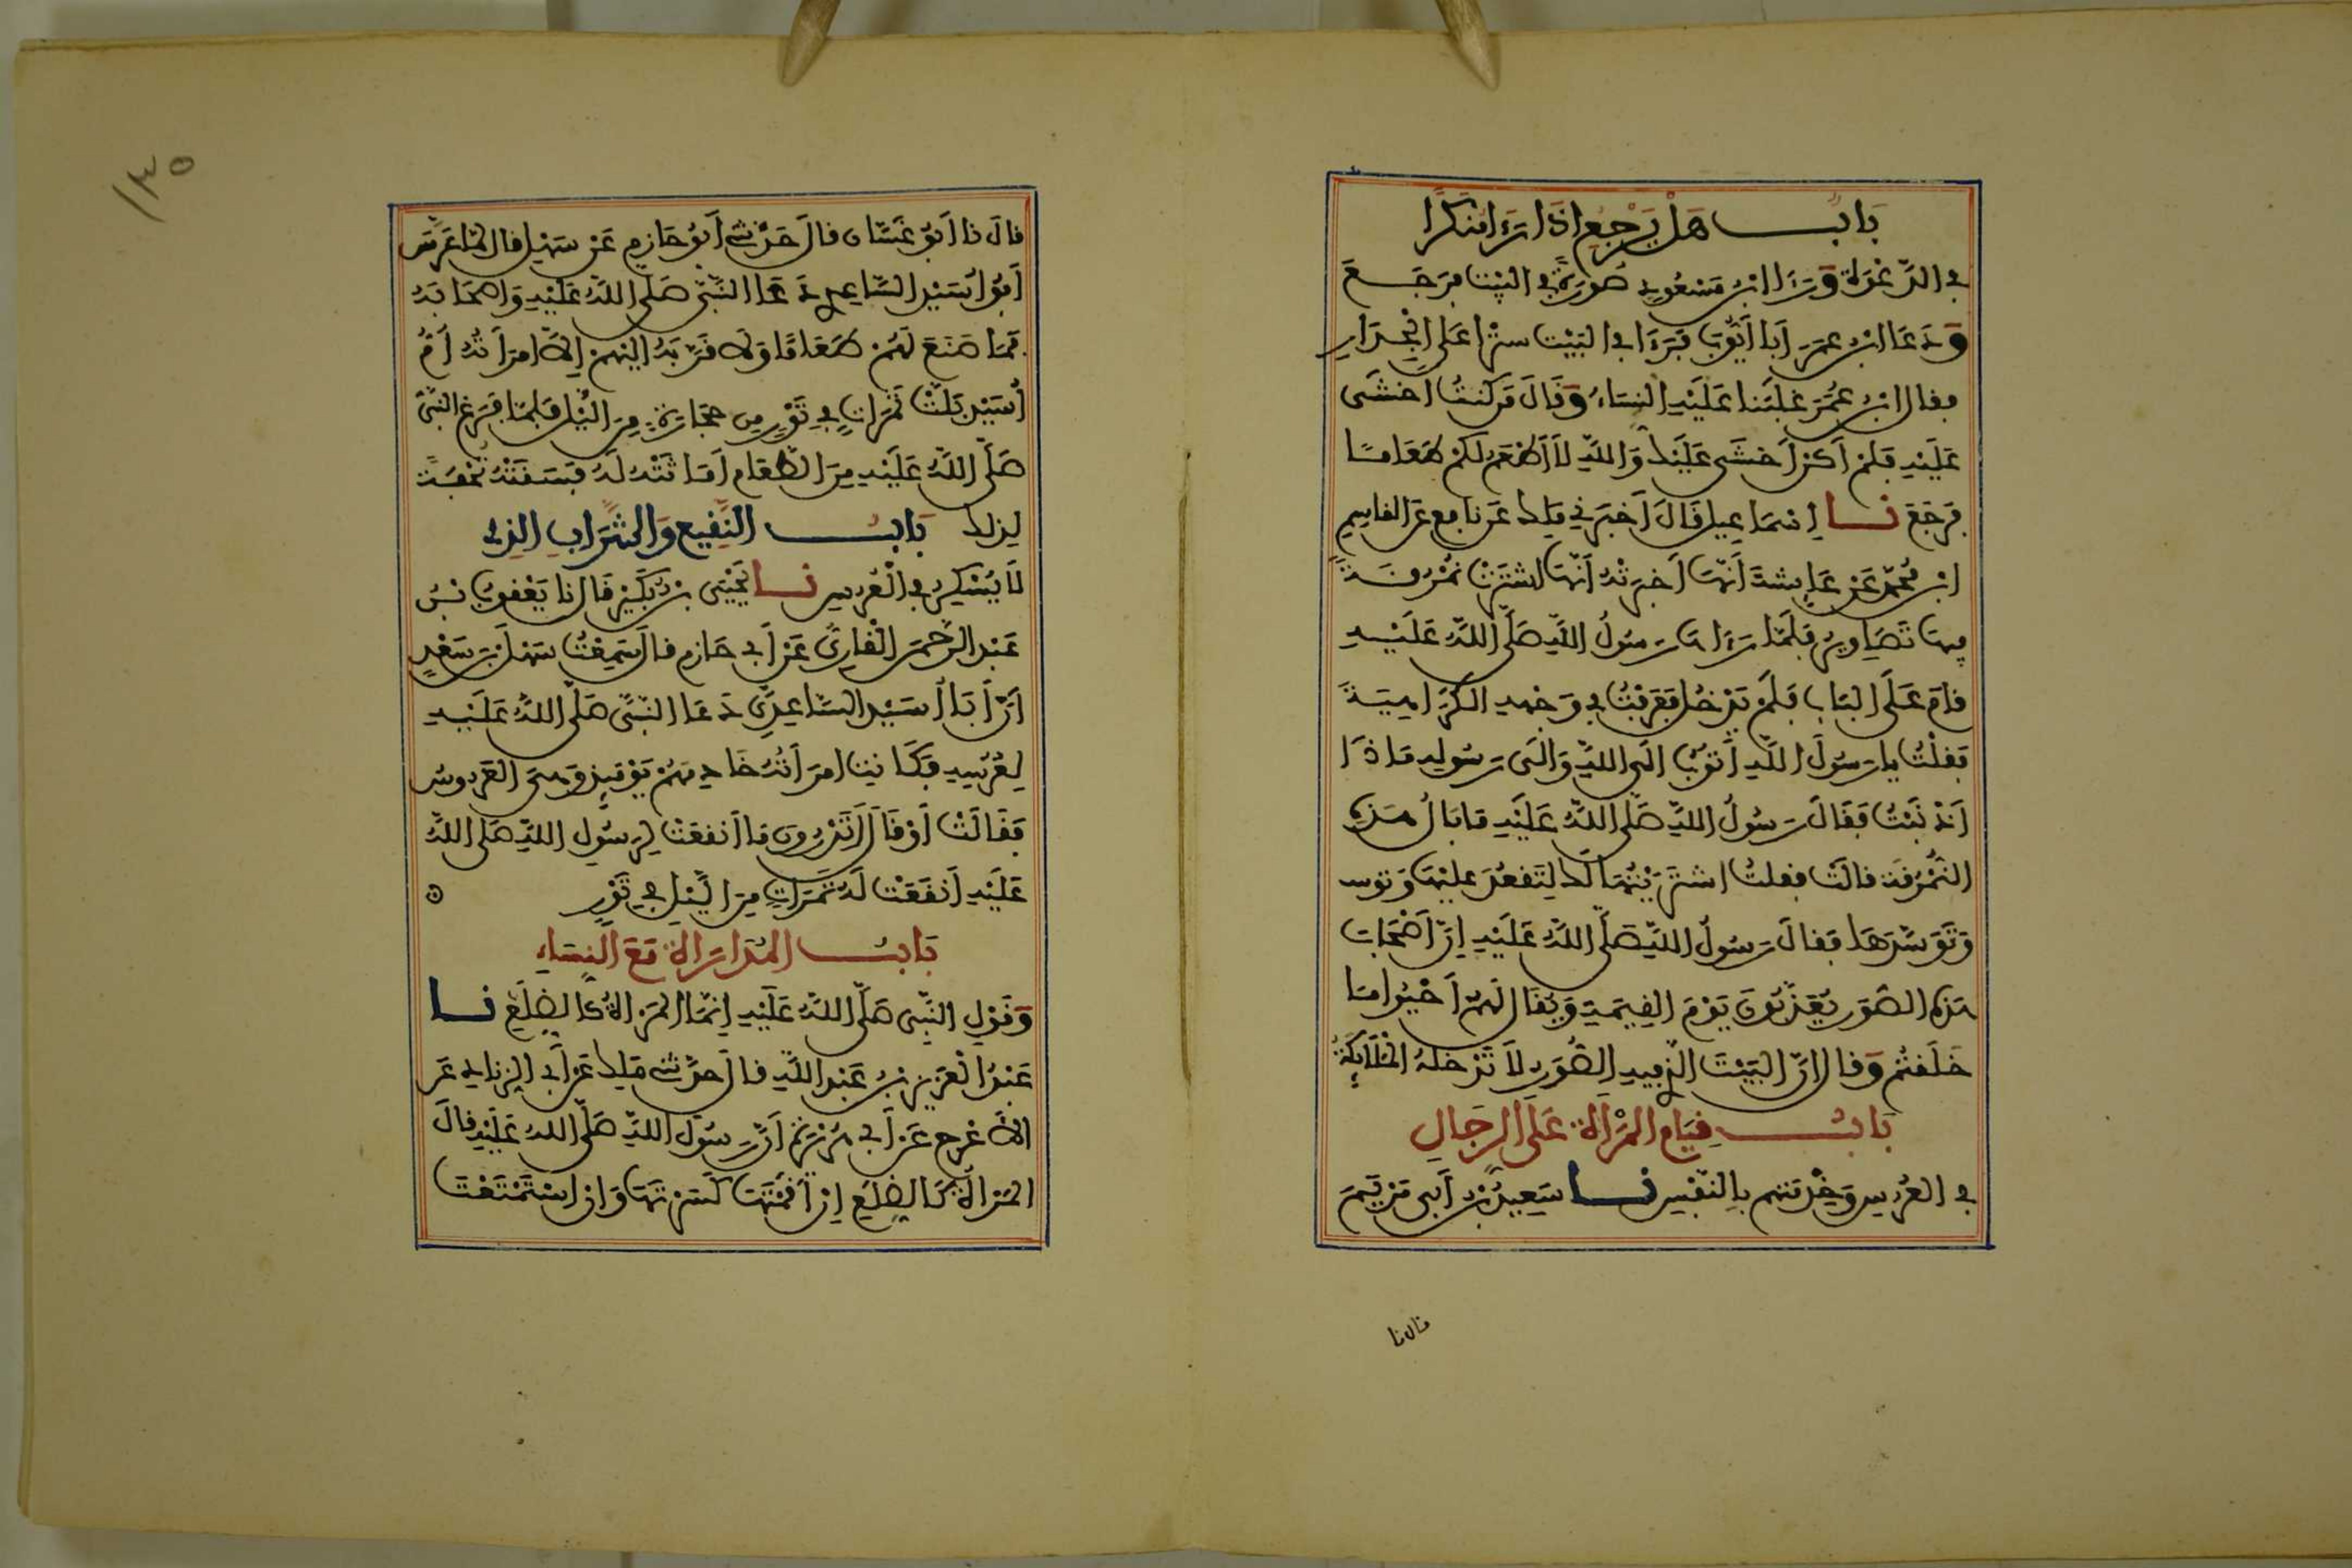 بَابُ هَلْ يَرْجِعُ اذَا رَءَا مُنكَرًا
في الدّعْوَةِ وَرَءَا ابْنُ مَسْعُودٍ صُورَةً في البَيْتِ فرَجَعَ
وَدَعَا ابْنُ عمَرَ أبَا أيُّوبَ فَرَءَا في البَيْتِ سِتْرًا عَلَى الْجِدَارِ
فقال ابْنُ عُمَرَ غَلَبَنا عَلَيْهِ النسَاءُ وَقَالَ مَن كنتُ أخشَى
عَلَيْهِ فَلمْ أكنْ أخشَى عَلَيْكَ وَاللَّهِ لاَ أطْعَمُ لكُمْ طَعَامًا
فرَجَعَ نا إسْمَاعِيل قَالَ أخبَرَنِي مَلِك عَن نافِعٍ عَن القاسِمِ
ابْنِ مُحمّدٍ عَنْ عَايِشةَ أنَّهَا أخبَرَتْهُ أنَّهَا اشتَرَتْ نمْرُقَةً
فِيهَا تَصَاوِيرُ فَلَمَّا رَءَاهَا رَسُولُ اللَّهِ صَلَّى اللَّهُ عَلَيْهِ
قامَ عَلَى البَابِ فَلَمْ يَدْخُلْ فَعَرَفْتُ في وَجْهِهِ الكَرَاهِيَةَ
فَقلْتُ يا رَسُولَ اللَّهِ أتوبُ الَى اللَّهِ وَالَى رَسُولِهِ مَاذَا
أذْنَبْتُ فَقَالَ رَسُولُ اللَّهِ صَلَّى اللَّهُ عَلَيْهِ مَا بَالُ هَذِهِ
النُّمْرُقَة قالَتْ فقلتُ اشتَرَيْتُهَا لَكَ لِتَقعُدَ عليْهَا وَتوسد
وَتَوَسَّدَهَا فَقالَ رَسُولُ اللَّهِ صَلَّى اللَّهُ عَلَيْهِ إنَّ أصْحَابَ
هَذِهِ الصُّوَرِ يُعَذَّبُونَ يَوْمَ القِيَمَةِ وَيُقَالُ لَهُمْ أحْيُوا مَا
خَلَقتُمْ وَقالَ إنَّ البَيْتَ الّذِي فِيهِ الصُّوَرُ لاَ تَدْخلهُ المَلاَيِكَةُ
بَابُ قِيَامِ المَرْأةِ عَلَى الرجَالِ
في العُرْسِ وَخِدْمَتِهِم بالنَّفْسِ نا سَعِيدُ بْنُ أبي مَرْيَمَ
قال نا
١٣٥
قالَ نا أبُو غَسَّان قالَ حَدَّثَني أبُو حَازِمٍ عَنْ سَهْلٍ قال لمَّا عَرَّسَ
أبُو أُسَيْدٍ السَّاعِدي دَعَا النَّبِيَّ صَلَّى اللَّهُ عَلَيْهِ وَأصحَابَهُ
فَمَا صَنَعَ لَهُمْ طَعَامًا وَلاَ قَرَّبَهُ إلَيْهِمْ إلاَّ امرَأتُهُ أُمُّ
أُسَيْدٍ بَلَّتْ تَمَرَاتٍ في تَوْرٍ مِن حِجَارَةٍ مِنَ اللَّيْلِ فَلمَّا فَرَغَ النَّبيُّ
صَلَّى اللَّهُ عَلَيْهِ مِنَ الطَّعَامِ أمَاثَتْهُ لَهُ فَسَقَتْهُ تُحْفَةً
لِذلك بَابُ النَّقِيعِ وَالشَّرَابِ الذي
لَا يُسْكِرُ في الْعُرْسِ نا يَحْيَى بْنُ بُكَيْرٍ قَالَ نا يَعْقُوبُ بْنُ
عَبْدِ الرَّحْمَنِ الْقَارِيُّ عَنْ أبي حَازِمٍ قالَ سَمِعْتُ سَهْلَ بْنَ سَعْدٍ
أنَّ أبَا أُسَيْدٍ السَّاعِدِيَّ دَعَا النَّبيَّ صَلَّى اللَّهُ عَلَيْهِ
لِعُرْسِهِ فَكَانَتِ امرَأتُهُ خَادِمَهُمْ يَوْمَئِذٍ وَهِيَ العَرُوسُ
فَقَالَتْ أوْ قَالَ أتَدْرُونَ مَا أنقعَتْ لِرَسُولِ اللَّهِ صَلَّى اللَّهُ
عَلَيْهِ أنقَعَتْ لَهُ تَمَرَاتٍ مِنَ اللَّيْلِ في تَوْرٍ
بَابُ المُدَارَاةِ مَعَ النِّسَاءِ
وَقَوْلِ النَّبيِّ صَلَّى اللَّهُ عَلَيْهِ إنَّمَا المَرْأةُ كَالضِّلَعِ نا
عَبْدُ الْعَزِيزِ بْنُ عَبْدِ اللَّهِ قالَ حَدَّثَني مَلِك عَنْ أبي الزِّنَادِ عَنِ
الأعْرَجِ عَنْ أبي هُرَيْرَةَ أنَّ رَسُولَ اللَّهِ صَلَّى اللَّهُ عَلَيْهِ قالَ
المَرْأةُ كَالضِّلَعِ إنْ أقَمْتَهَا كَسَرْتَهَا وَإنِ اسْتَمْتَعْتَ